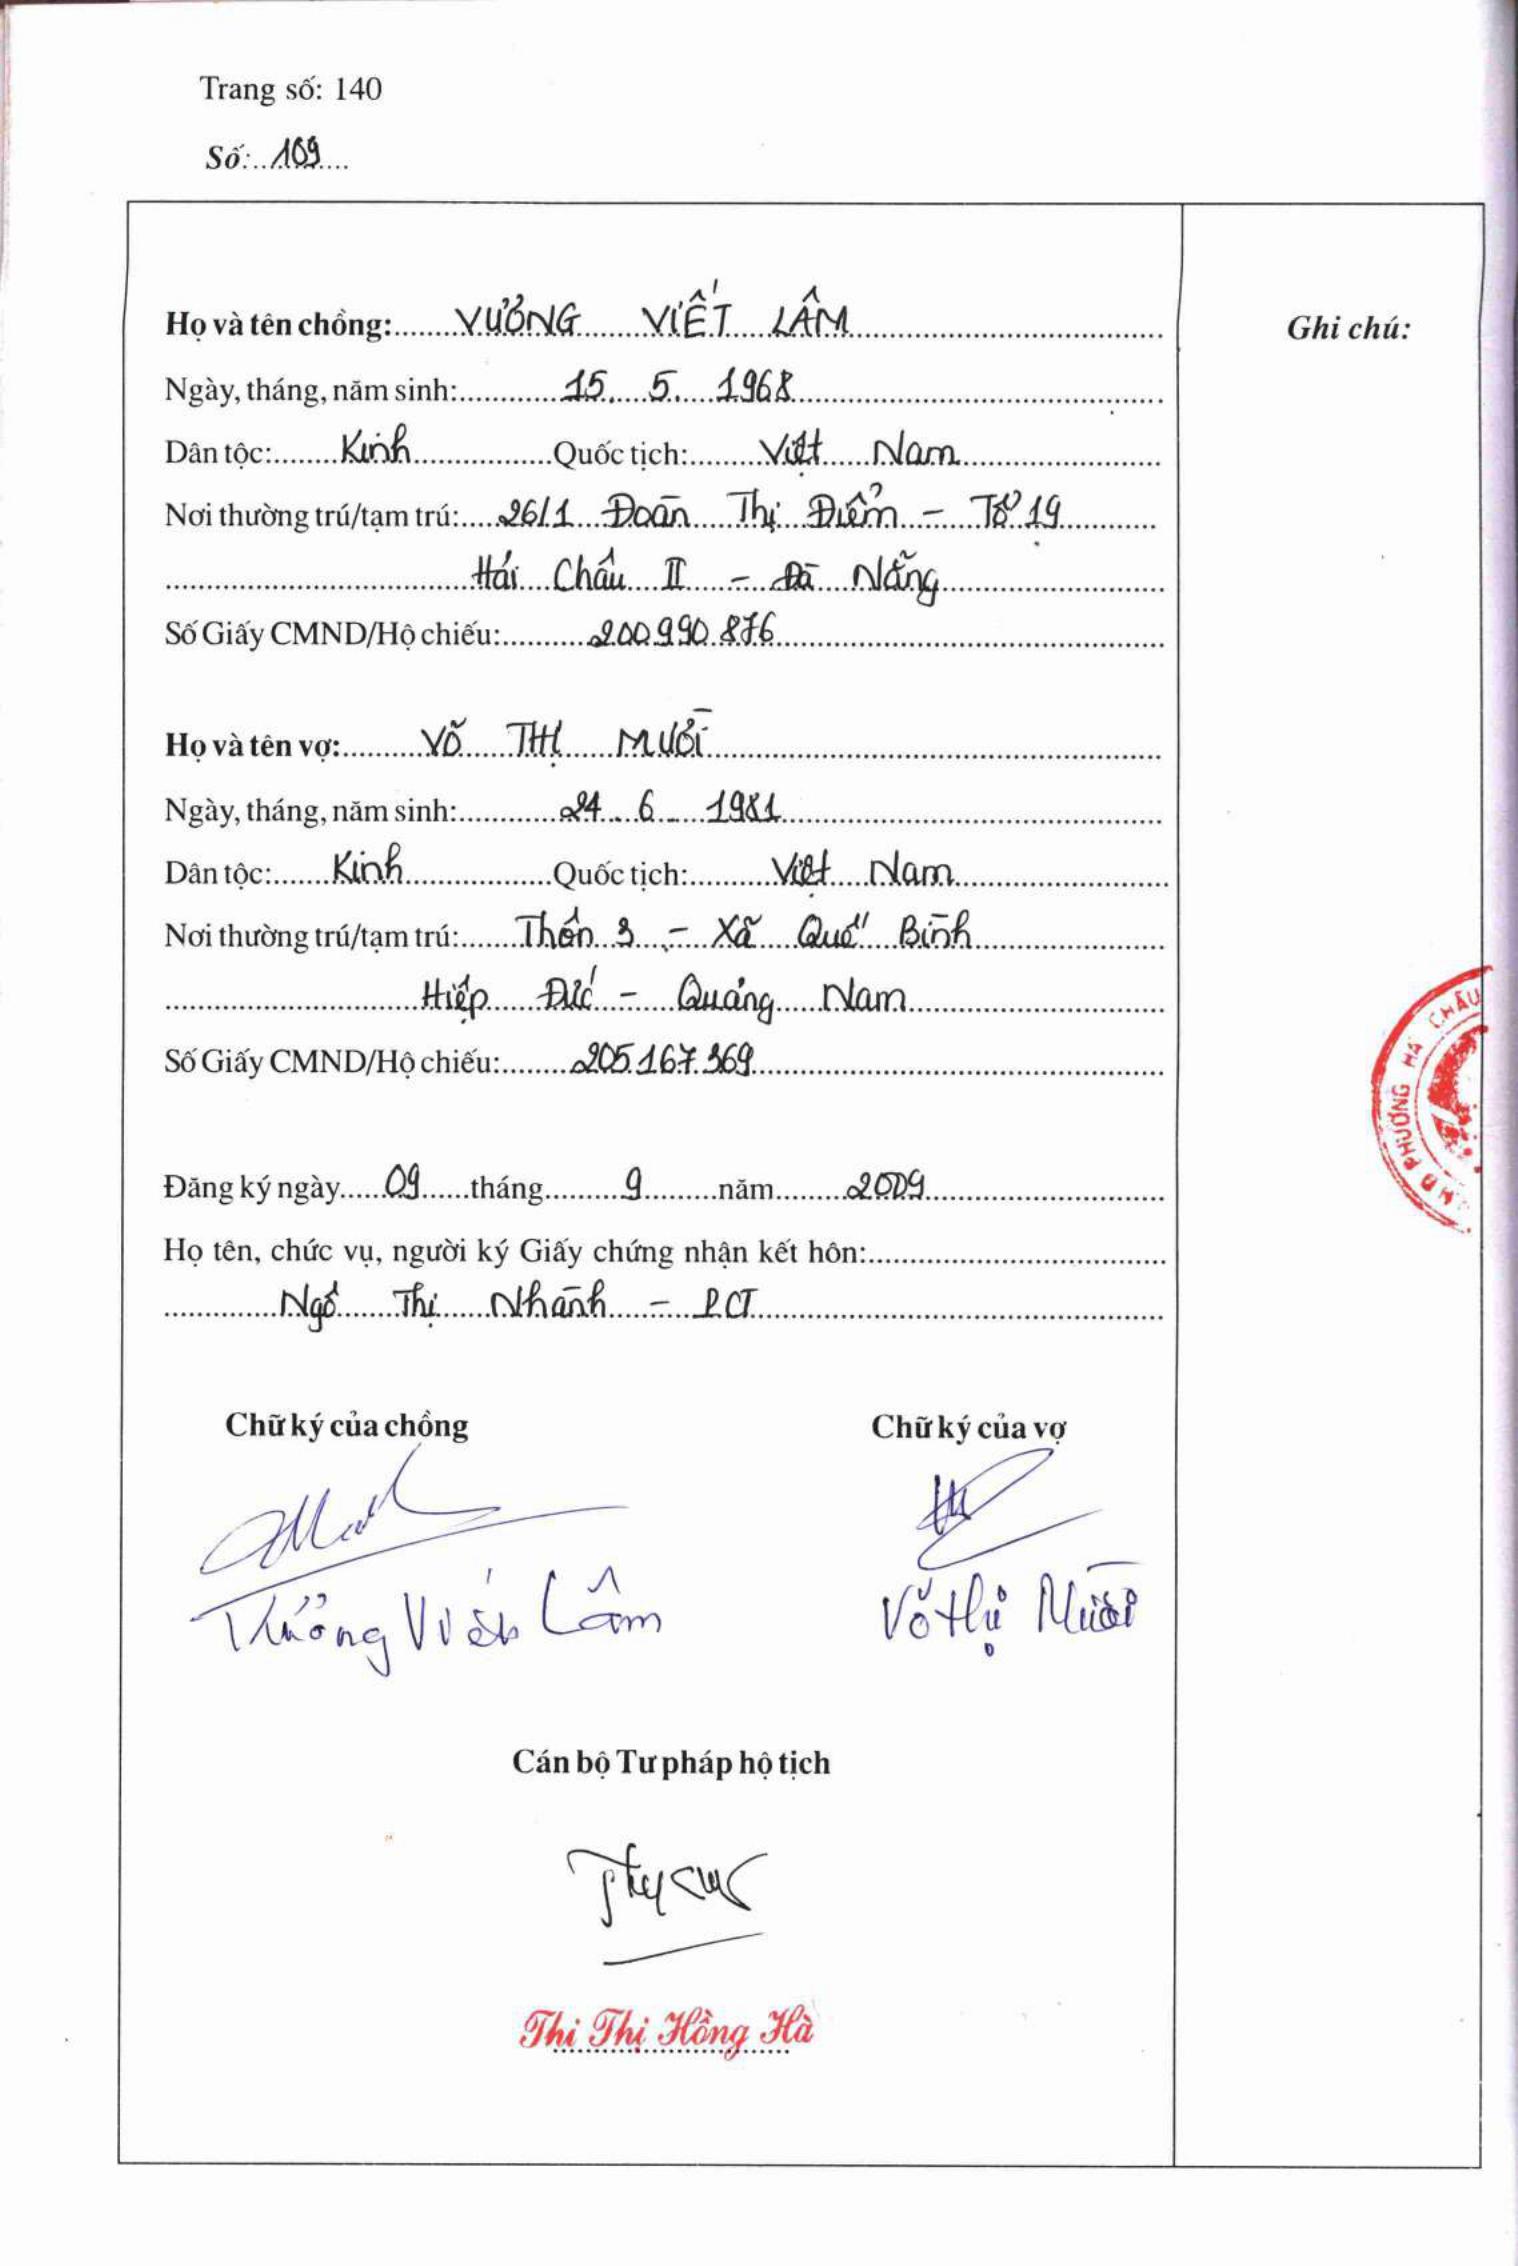 Trang số: 140
Số: 109
Họ và tên chồng: VƯƠNG VIẾT LÂM
Ghi chú:
Ngày, tháng, năm sinh: 15. 5. 1968
Dân tộc: Kinh Quốc tịch: Việt Nam
Nơi thường trú/tạm trú: 26/1 Đoàn Thị Điểm - Tổ 19
Hải Châu II - Đà Nẵng
Số Giấy CMND/Hộ chiếu: 200990876
Họ và tên vợ: VÕ THỊ MƯỜI
Ngày, tháng, năm sinh: 24. 6. 1981
Dân tộc: Kinh Quốc tịch: Việt Nam
Nơi thường trú/tạm trú: Thôn 3 - Xã Quế Bình
Hiệp Đức - Quảng Nam
Số Giấy CMND/Hộ chiếu: 205167369
PHƯỜNG HẢI CHÂU
Đăng ký ngày 09 tháng 9 năm 2009
Họ tên, chức vụ, người ký Giấy chứng nhận kết hôn:
Ngô Thị Nhành - PCT
Chữ ký của chồng Chữ ký của vợ
Viết Lâm Võ Thị Mười
Cán bộ Tư pháp hộ tịch
Thi Thị Hồng Hà